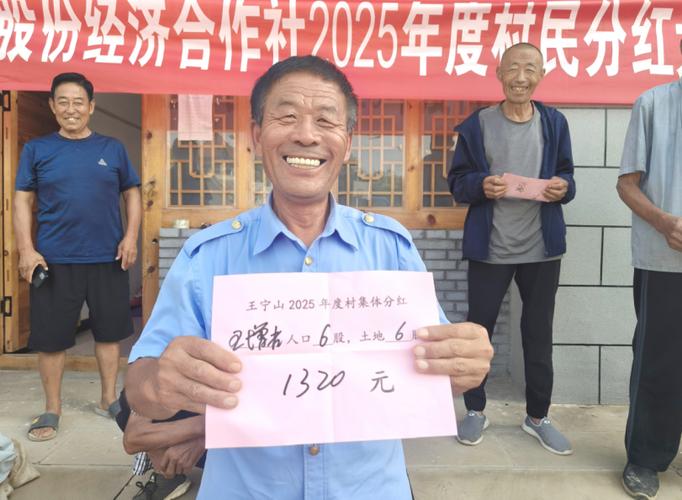 股份经济合作社2025年度村民分红
王宁山2025年度村集体分红
王增吉人口6股，土地6股
1320 元